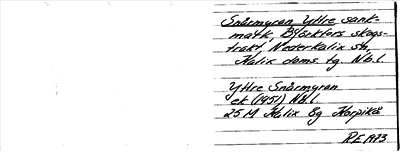 Snårmyran, Yttre sank-
mark, Björkfors skogs-
trakt, Nederkalix sn,
Kalix doms tg Nb.l.
Yttre Snårmyran
ek (1951) Nb.l
25 M Kalix 8g Korpikå
R.E 1973